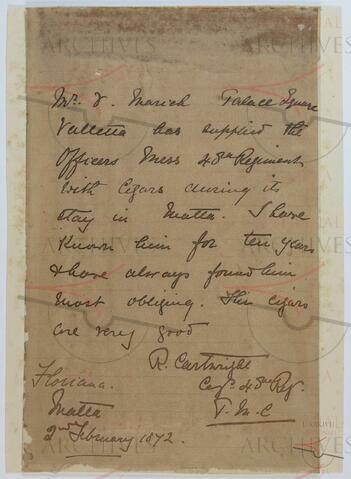 Mr. V. Marich Palace Square
Valletta has supplied the
Officers Mess 48th Regiment
with Cigars during its
stay in Malta. I have
Known him for ten years
& have always found him
most obliging. His cigars
are very good
R. Cartwright
Capt. 48th Reg.
P.M.C
Floriana.
Malta
2nd February 1872.
ARCHIVES